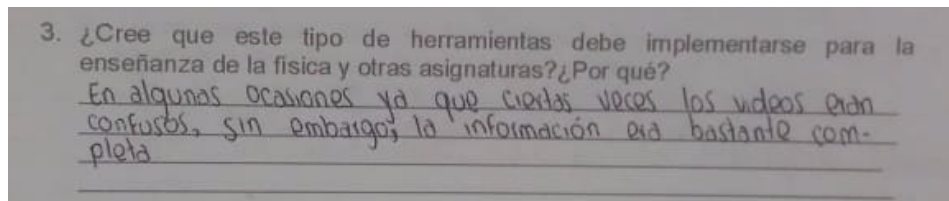 3. ¿Cree que este tipo de herramientas debe implementarse para la
enseñanza de la física y otras asignaturas?¿Por qué?
En algunas ocasiones ya que ciertas veces los videos eran
confusos, sin embargo, la información era bastante com-
pleta